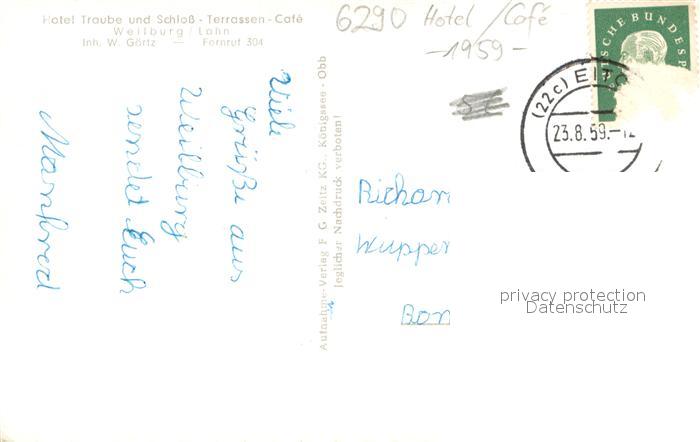 Hotel Traube und Schloß - Terrassen-Café
Weilburg / Lahn
Inh. W. Görtz — Fernruf 304
6290 Hotel / Café
-1959-
Viele
Grüße aus
Weilburg
sendet Euch
Manfred
Aufnahme-Verlag F G Zeitz KG., Königssee - Obb
Jeglicher Nachdruck verboten!
SCHE BUNDESP
(22c) EITO
23.8.59.-12
Richar
Wupper
Bon
privacy protection
Datenschutz